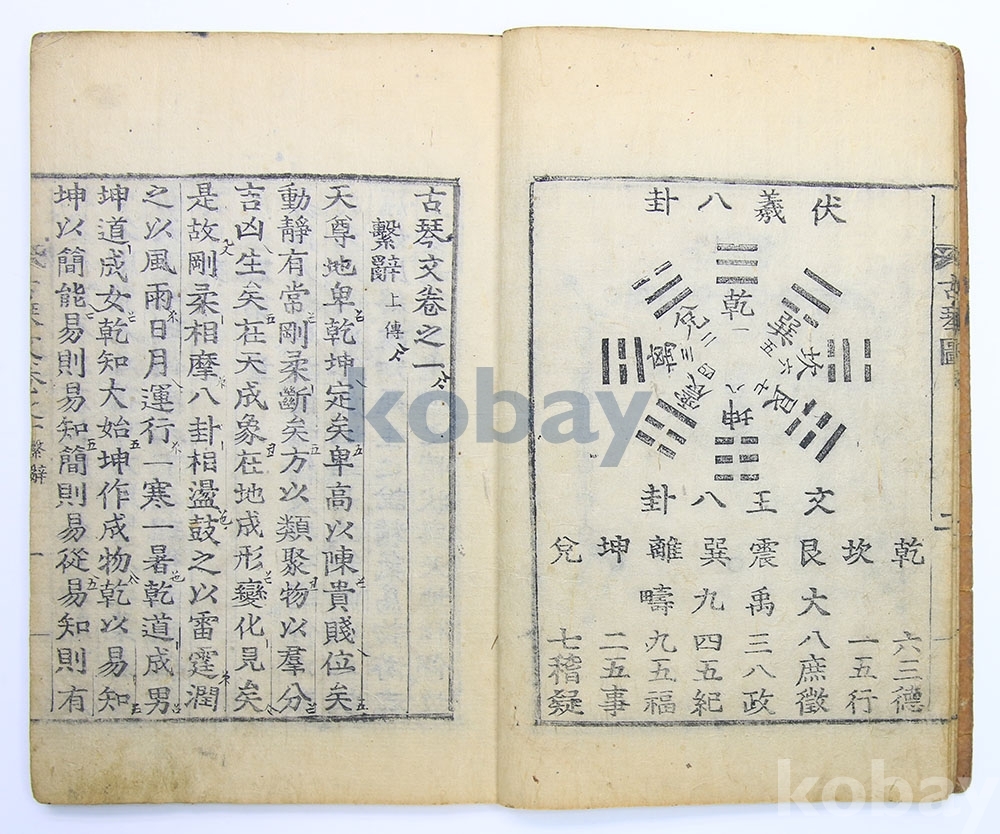 古琴圖
伏羲八卦
乾一
兌二
離三
震四
巽五
坎六
艮七
坤八
文王八卦
乾 六三德
坎 一五行
艮大 八庶徵
震禹 三八政
巽九 四五紀
離疇 九五福
坤 二五事
兌 七稽疑
古琴文卷之一
繫辭上傳
天尊地卑乾坤定矣卑高以陳貴賤位矣
動靜有常剛柔斷矣方以類聚物以羣分
吉凶生矣在天成象在地成形變化見矣
是故剛柔相摩八卦相盪鼓之以雷霆潤
之以風雨日月運行一寒一暑乾道成男
坤道成女乾知大始坤作成物乾以易知
坤以簡能易則易知簡則易從易知則有
繫辭 一
kobay
kobay